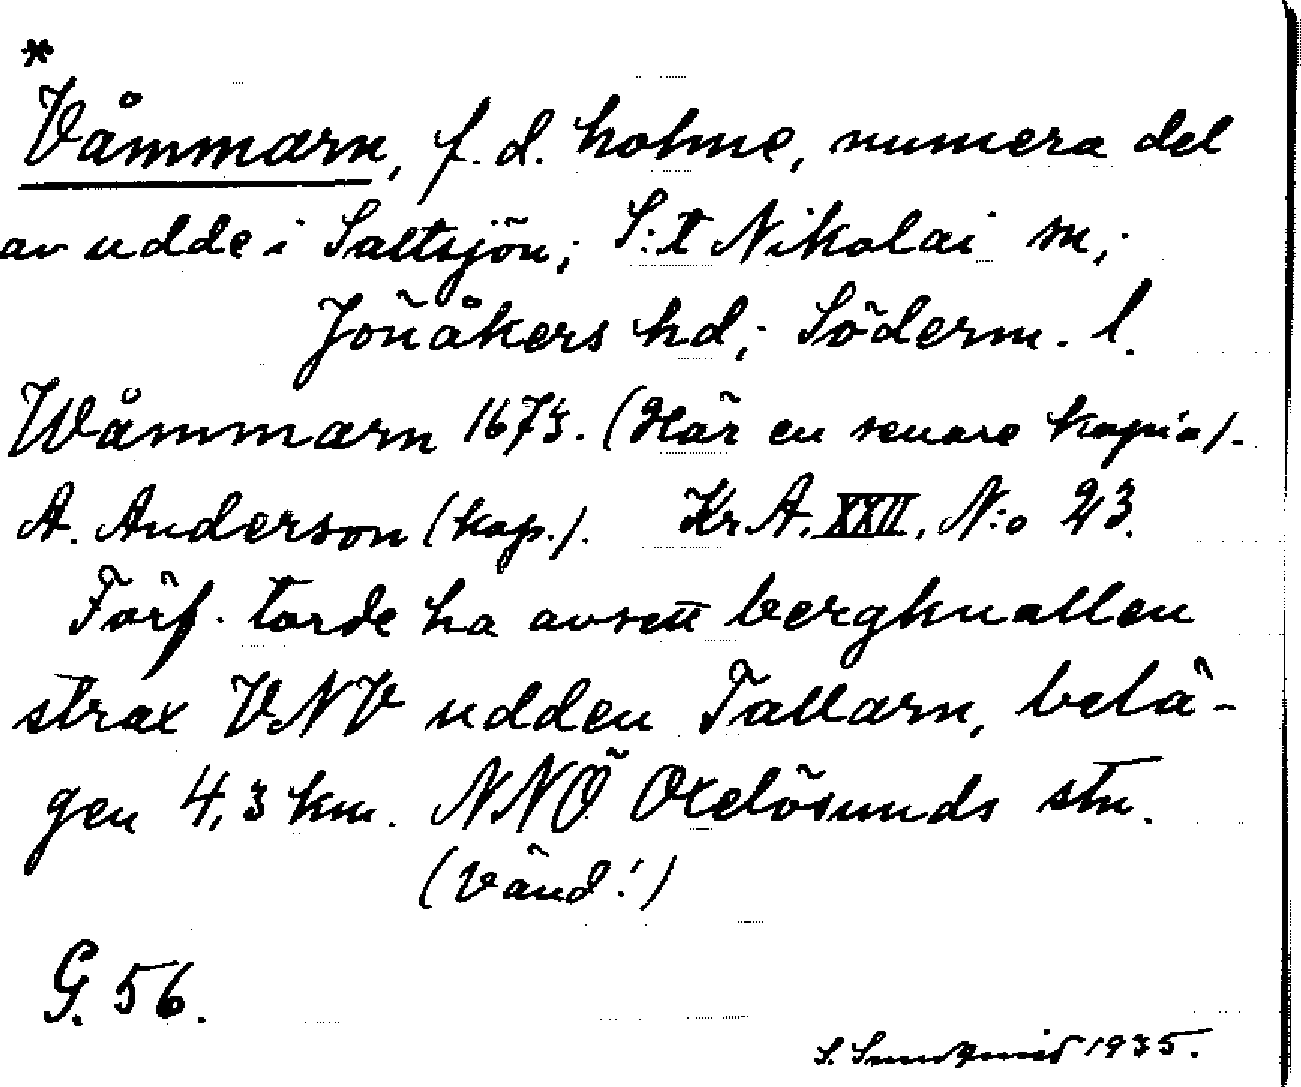 *
Våmmarn, f. d. holme, numera del
av udde i Saltsjön; S:t Nikolai sn;
Jönåkers hd; Söderm. l.
Wåmmarn 1673. (Här en senare kopia).
A. Anderson (kop.). Kr. A. XXII. N:o 23.
Förf. torde ha avsett bergknallen
strax VNV udden Tallarn, belä-
gen 4,3 km. NNÖ Oxelösunds stn.
(Vänd!)
G. 56.
S. Sundqvist 1935.